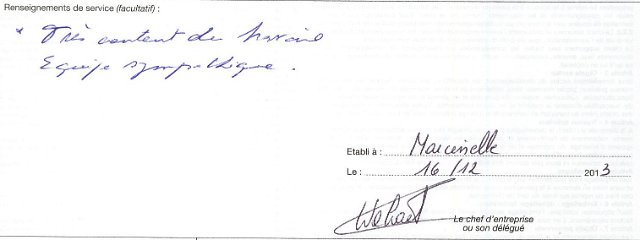 Renseignements de service (facultatif) :
* Très content du travail
Equipe sympathique.
Etabli à : Marcinelle
Le : 16/12 2013
Le chef d'entreprise
ou son délégué